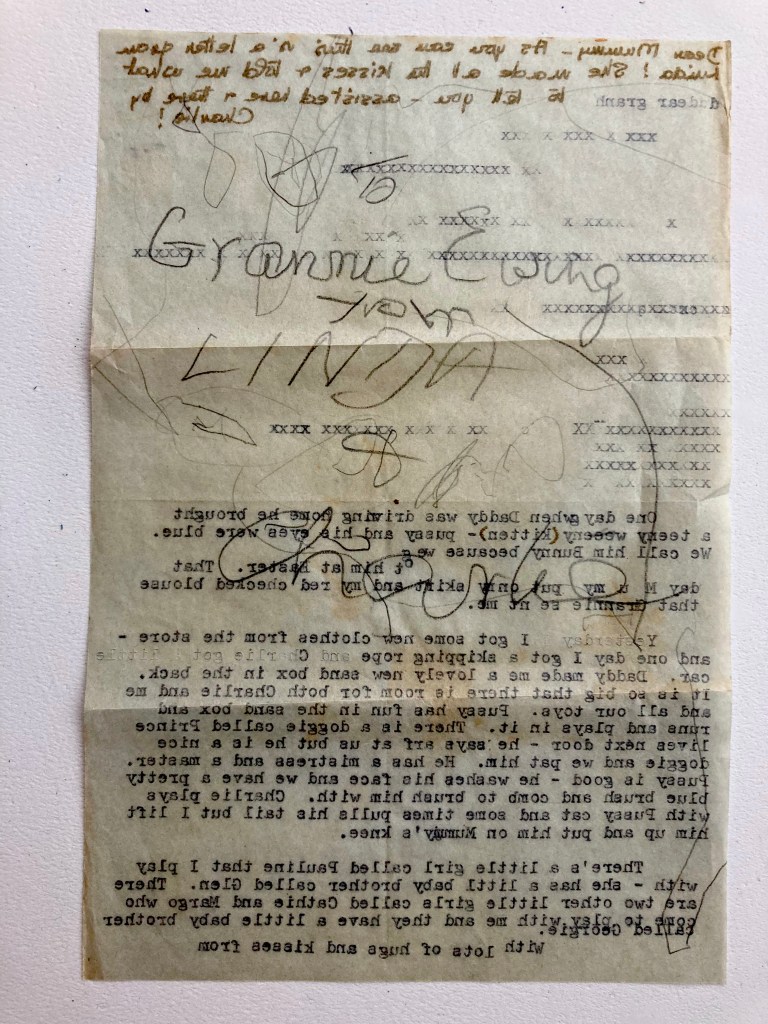 Dear Mummy - As you can see this is a letter from
Linda! She made all the kisses & told me what
to tell you - assisted here & there by
Charlie!
ddear granh
xxx x xxx x xx
xxxxxxxxxxxxxxxxxx
To
Grannie Ewing
from
LINDA
One day when Daddy was driving home he brought
a teeny weeeny (kitten) - pussy and his eyes were blue.
We call him Bunny because we g
t him at Easter. That
day M u my put on my skirt and my red checked blouse
that Grannie se nt me.
Yesterday I got some new clothes from the store -
and one day I got a skipping rope and Charlie got little
car. Daddy made me a lovely new sand box in the back.
It is so big that there is room for both Charlie and me
and all our toys. Pussy has fun in the sand box and
runs and plays in it. There is a doggie called Prince
lives next door - he says arf at us but he is a nice
doggie and we pat him. He has a mistress and a master.
Pussy is good - he washes his face and we have a pretty
blue brush and comb to brush him with. Charlie plays
with Pussy cat and some times pulls his tail but I lift
him up and put him on Mummy's knee.
There's a little girl called Pauline that I play
with - she has a littl baby brother called Glen. There
are two other little girls called Cathie and Margo who
come to play with me and they have a little baby brother
called Georgie.
With lots of hugs and kisses from